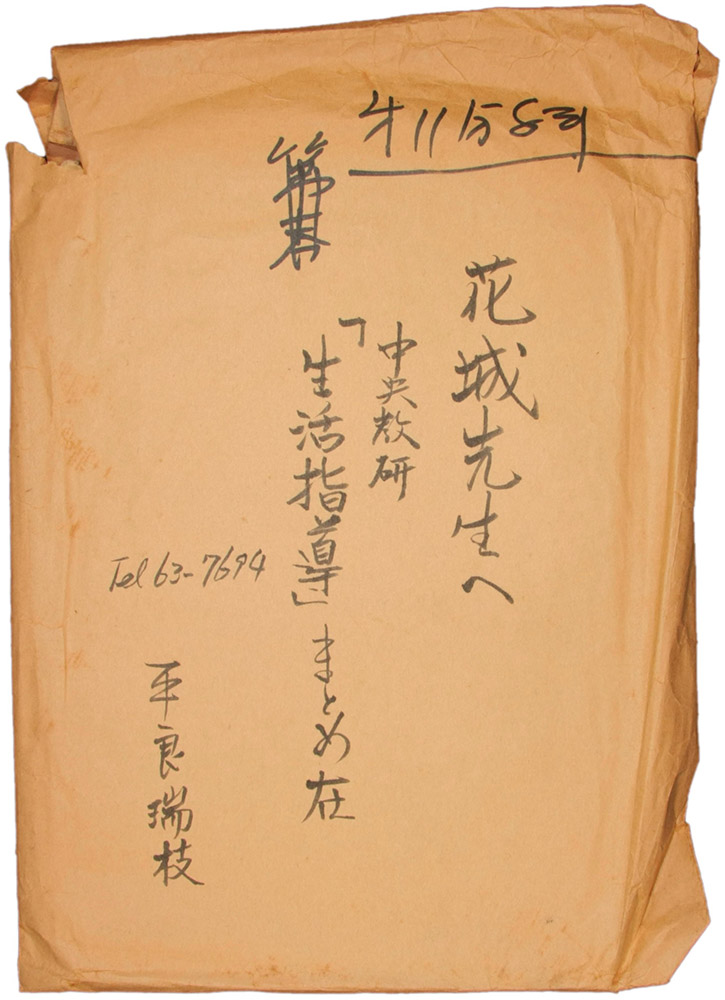 才11分
花城先生へ
中央教研
「生活指導」まとめ在
Tel 63-7694
平良瑞枝